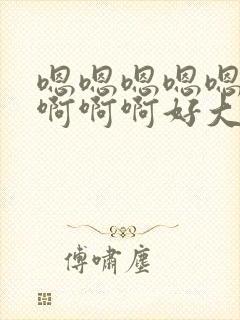 嗯嗯嗯嗯嗯
啊啊啊好大
傅啸尘